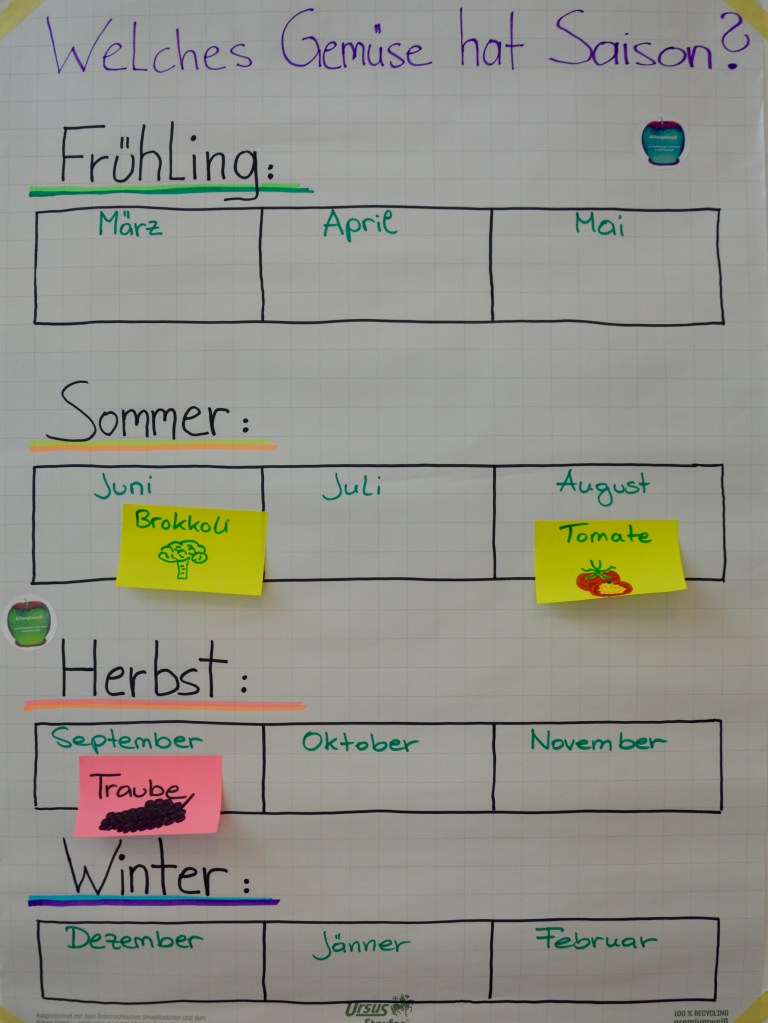 Welches Gemüse hat Saison?
Frühling:
März April Mai
Sommer:
Juni Juli August
Brokkoli
Tomate
Herbst:
September Oktober November
Traube
Winter:
Dezember Jänner Februar
Ursus
100 % RECYCLING
premiumweiß